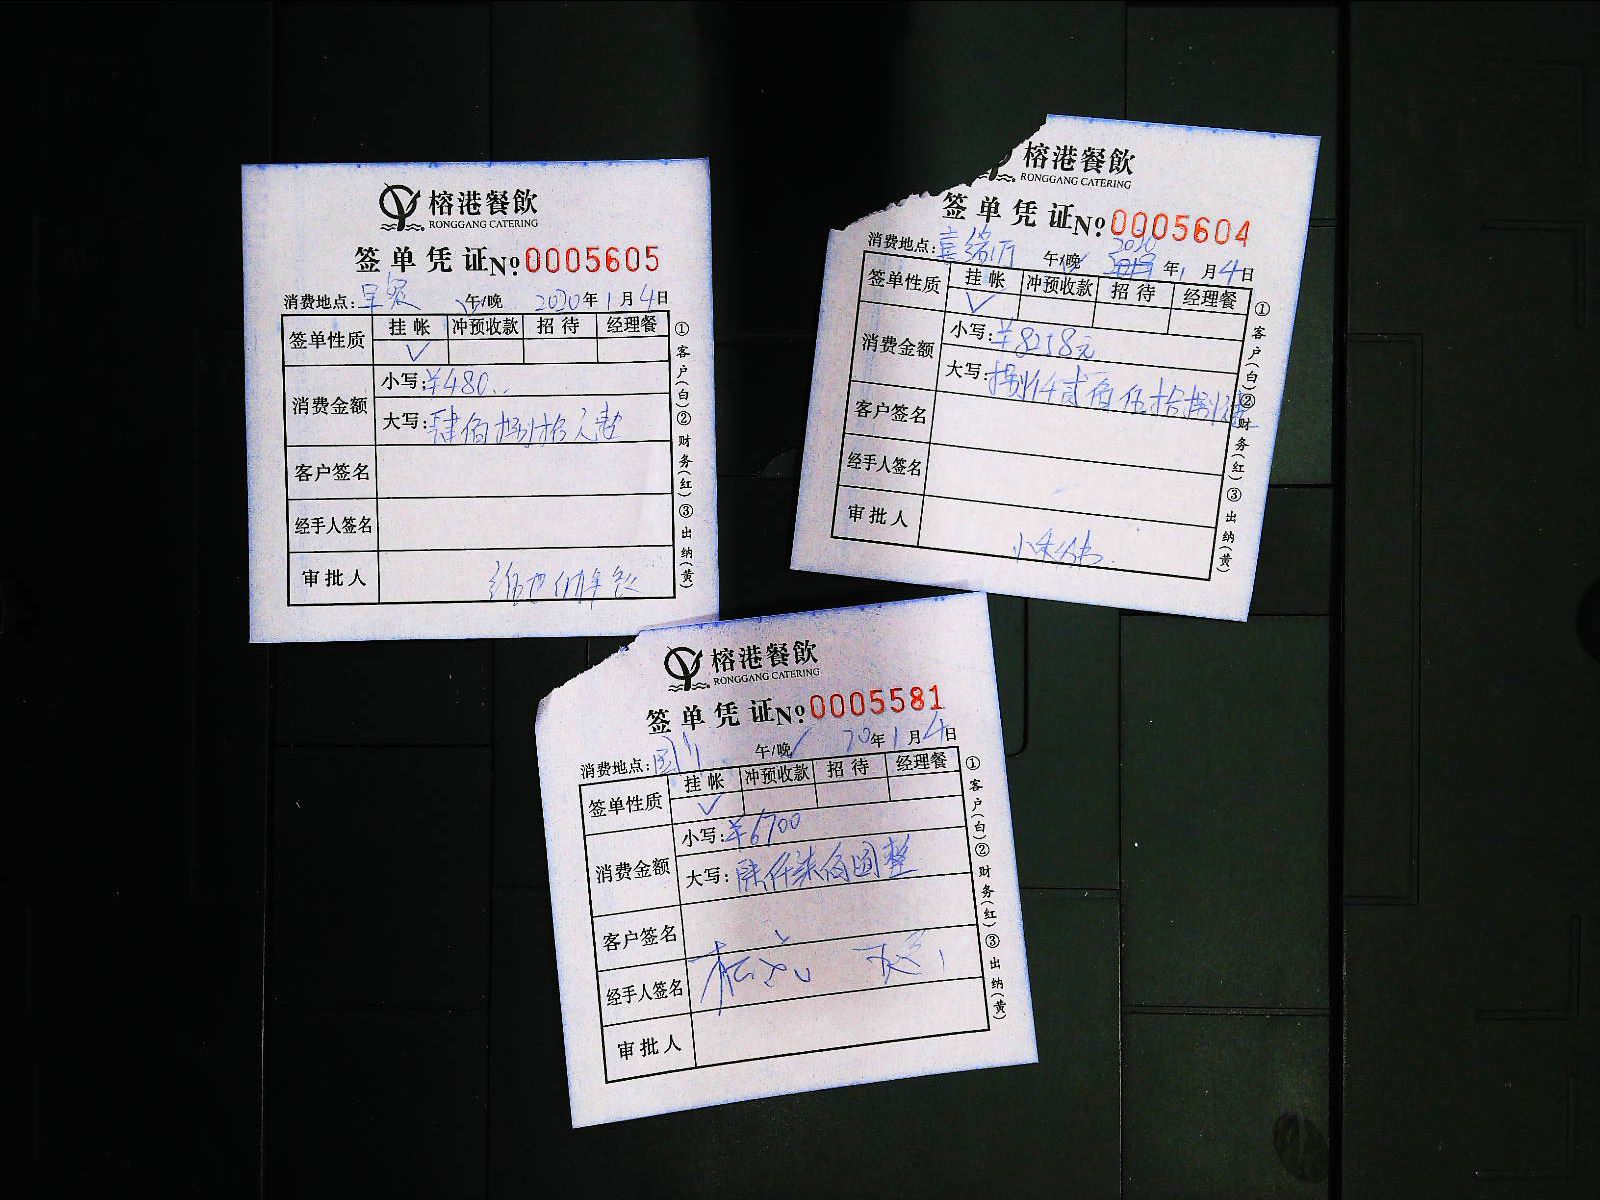 榕港餐飲
RONGGANG CATERING
签单凭证No 0005605
消费地点: 午/晚 2020年1月4日
签单性质 挂帐 冲预收款 招待 经理餐
消费金额 小写:¥480
大写:肆佰捌拾元整
客户签名
经手人签名
审批人
①客户(白)②财务(红)③出纳(黄)
榕港餐飲
RONGGANG CATERING
签单凭证No 0005604
消费地点: 午/晚 2020年1月4日
签单性质 挂帐 冲预收款 招待 经理餐
消费金额 小写:¥8258元
大写:捌仟贰佰伍拾捌元整
客户签名
经手人签名
审批人
①客户(白)②财务(红)③出纳(黄)
榕港餐飲
RONGGANG CATERING
签单凭证No 0005581
消费地点: 午/晚 20年1月4日
签单性质 挂帐 冲预收款 招待 经理餐
消费金额 小写:¥6700
大写:陆仟柒佰圆整
客户签名
经手人签名
审批人
①客户(白)②财务(红)③出纳(黄)